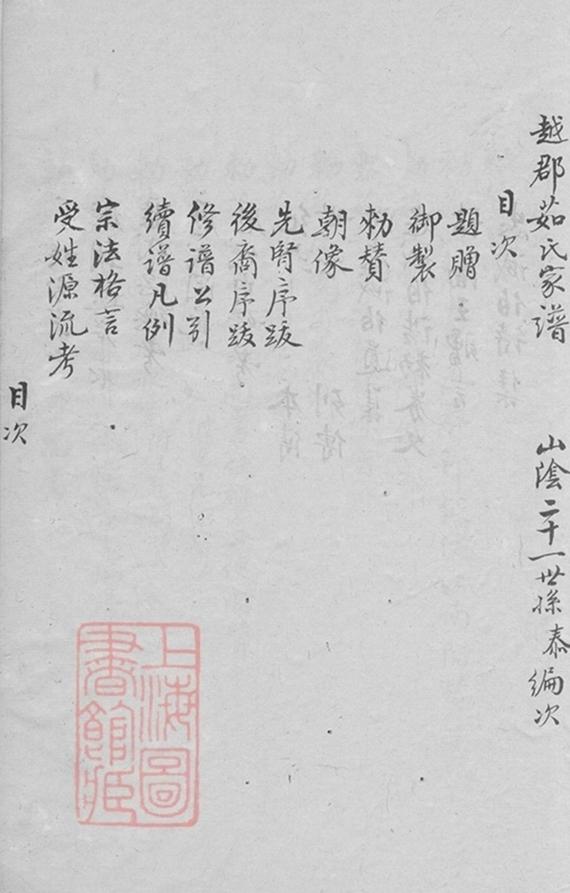 越郡茹氏家譜 山陰二十一世孫泰編次
目次
題贈
御製
勅賛
朝像
先賢序跋
後裔序跋
修譜公引
續譜凡例
宗法格言
受姓源流考
目次
上海圖書館藏